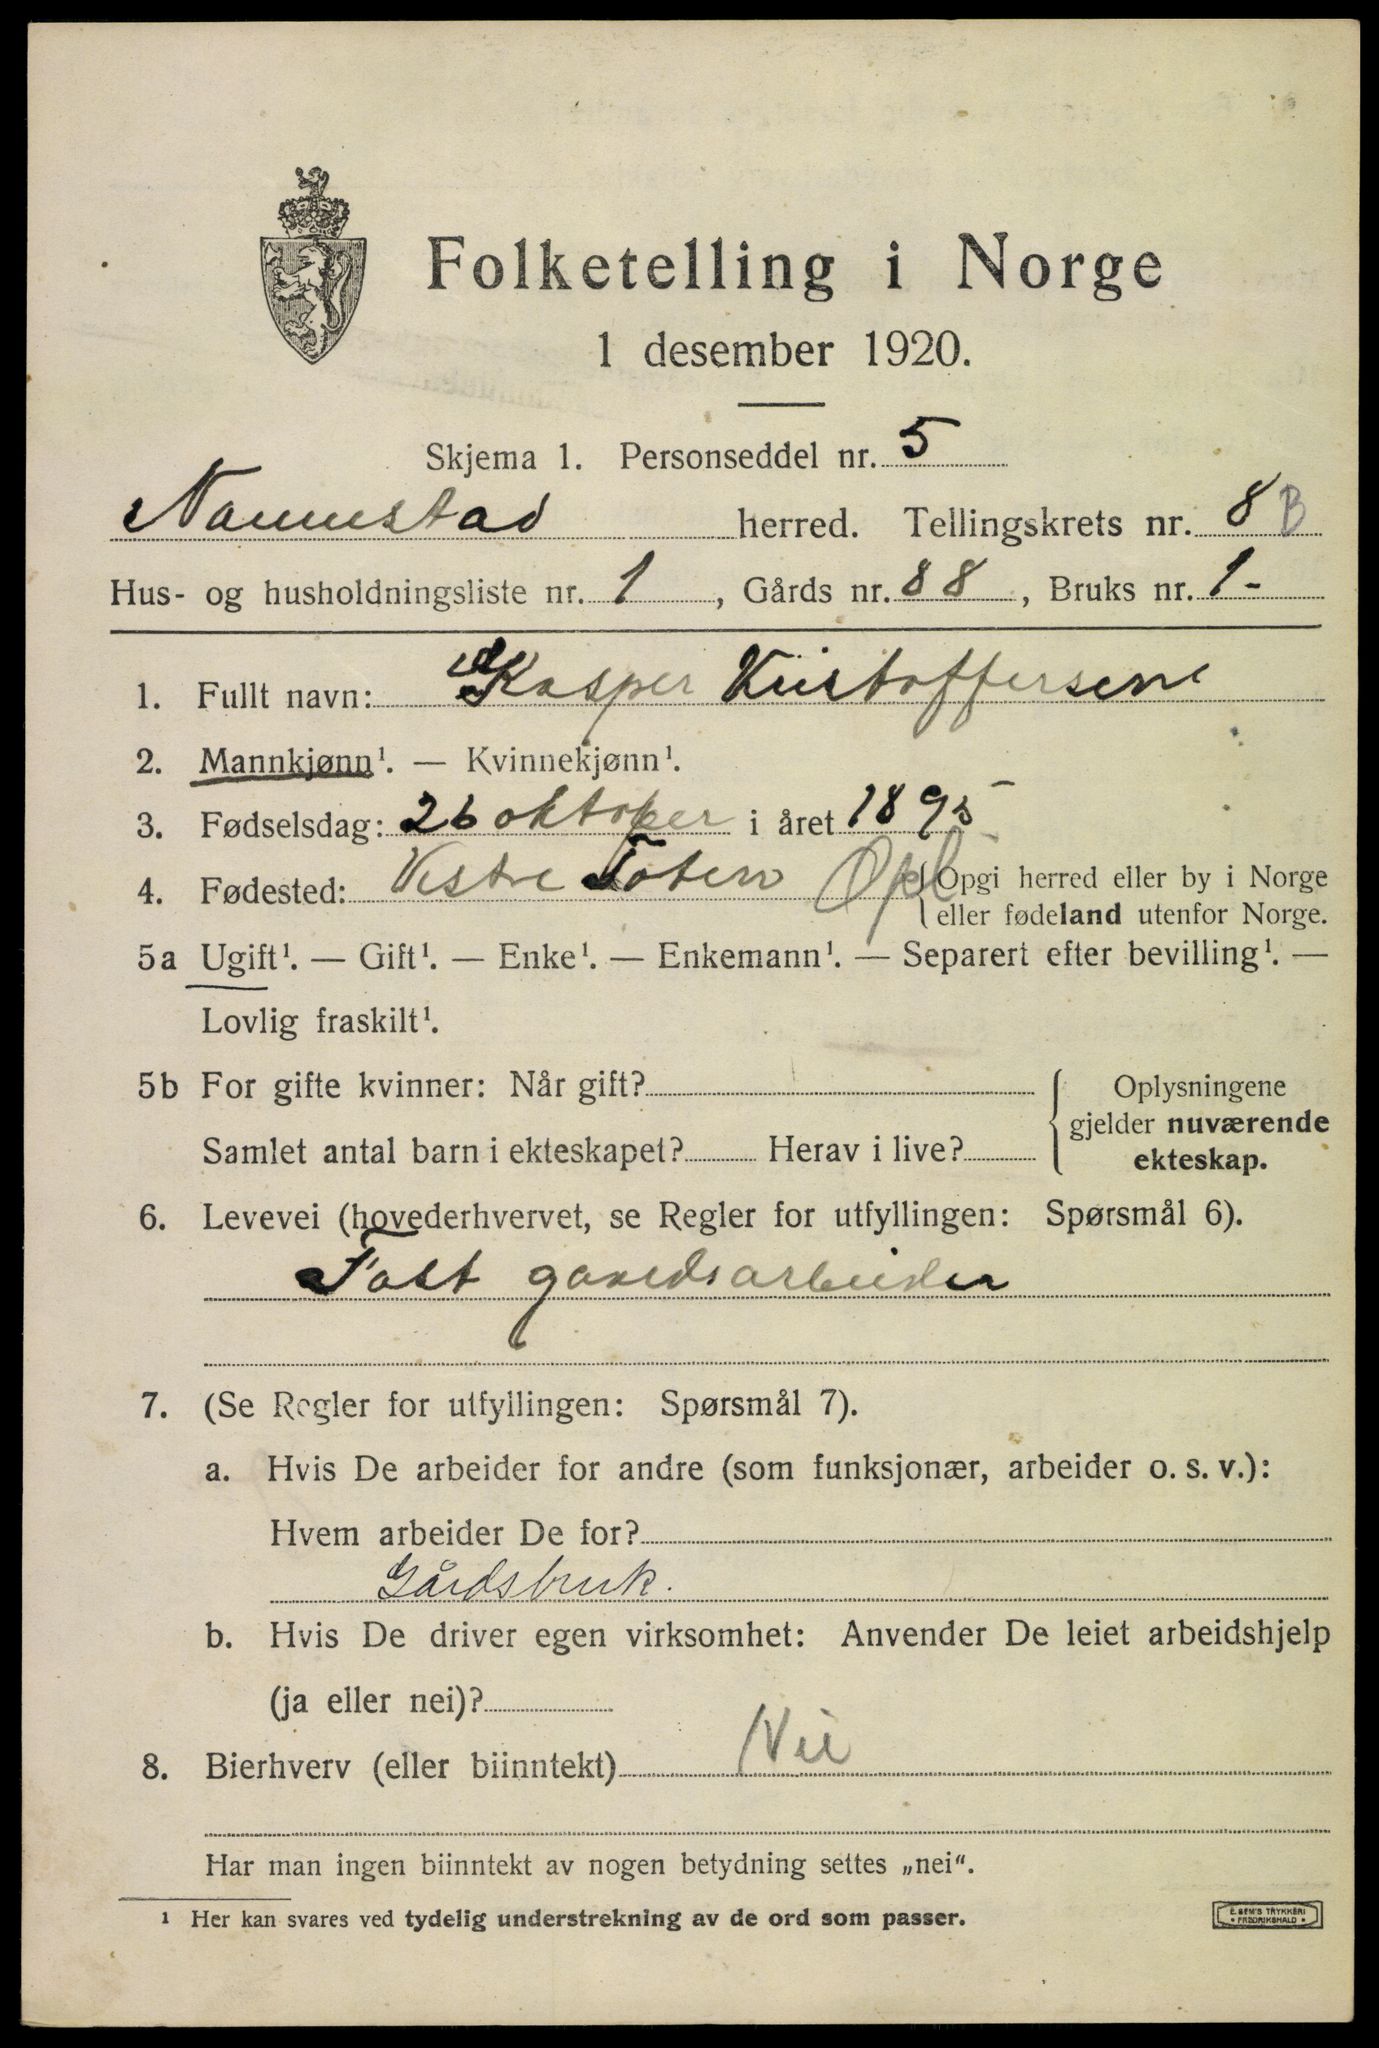 Folketelling i Norge
1 desember 1920.
Skjema 1. Personseddel nr. 5
Nannestad herred. Tellingskrets nr. 8 B
Hus- og husholdningsliste nr. 1, Gårds nr. 88, Bruks nr. 1-
1. Fullt navn: Kasper Kristoffersen
2. Mannkjønn¹. — Kvinnekjønn¹.
3. Fødselsdag: 26 oktober i året 1895
4. Fødested: Vestre Toten Opl Opgi herred eller by i Norge
eller fødeland utenfor Norge.
5a Ugift¹. — Gift¹. — Enke¹. — Enkemann¹. — Separert efter bevilling¹. —
Lovlig fraskilt¹.
5b For gifte kvinner: Når gift?
Samlet antal barn i ekteskapet? Herav i live?
Oplysningene
gjelder nuværende
ekteskap.
6. Levevei (hovederhvervet, se Regler for utfyllingen: Spørsmål 6).
Fast gaardsarbeider
7. (Se Regler for utfyllingen: Spørsmål 7).
a. Hvis De arbeider for andre (som funksjonær, arbeider o. s. v.):
Hvem arbeider De for?
Gårdsbruk.
b. Hvis De driver egen virksomhet: Anvender De leiet arbeidshjelp
(ja eller nei)?
8. Bierhverv (eller biinntekt) Nei
Har man ingen biinntekt av nogen betydning settes „nei".
¹ Her kan svares ved tydelig understrekning av de ord som passer.
E. SEM'S TRYKKERI
• FREDRIKSHALD •